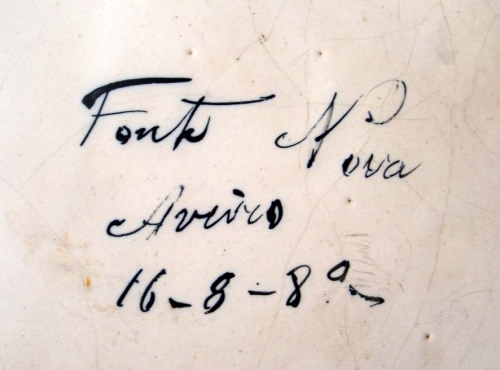 Fonte Nova
Aveiro
16-8-8